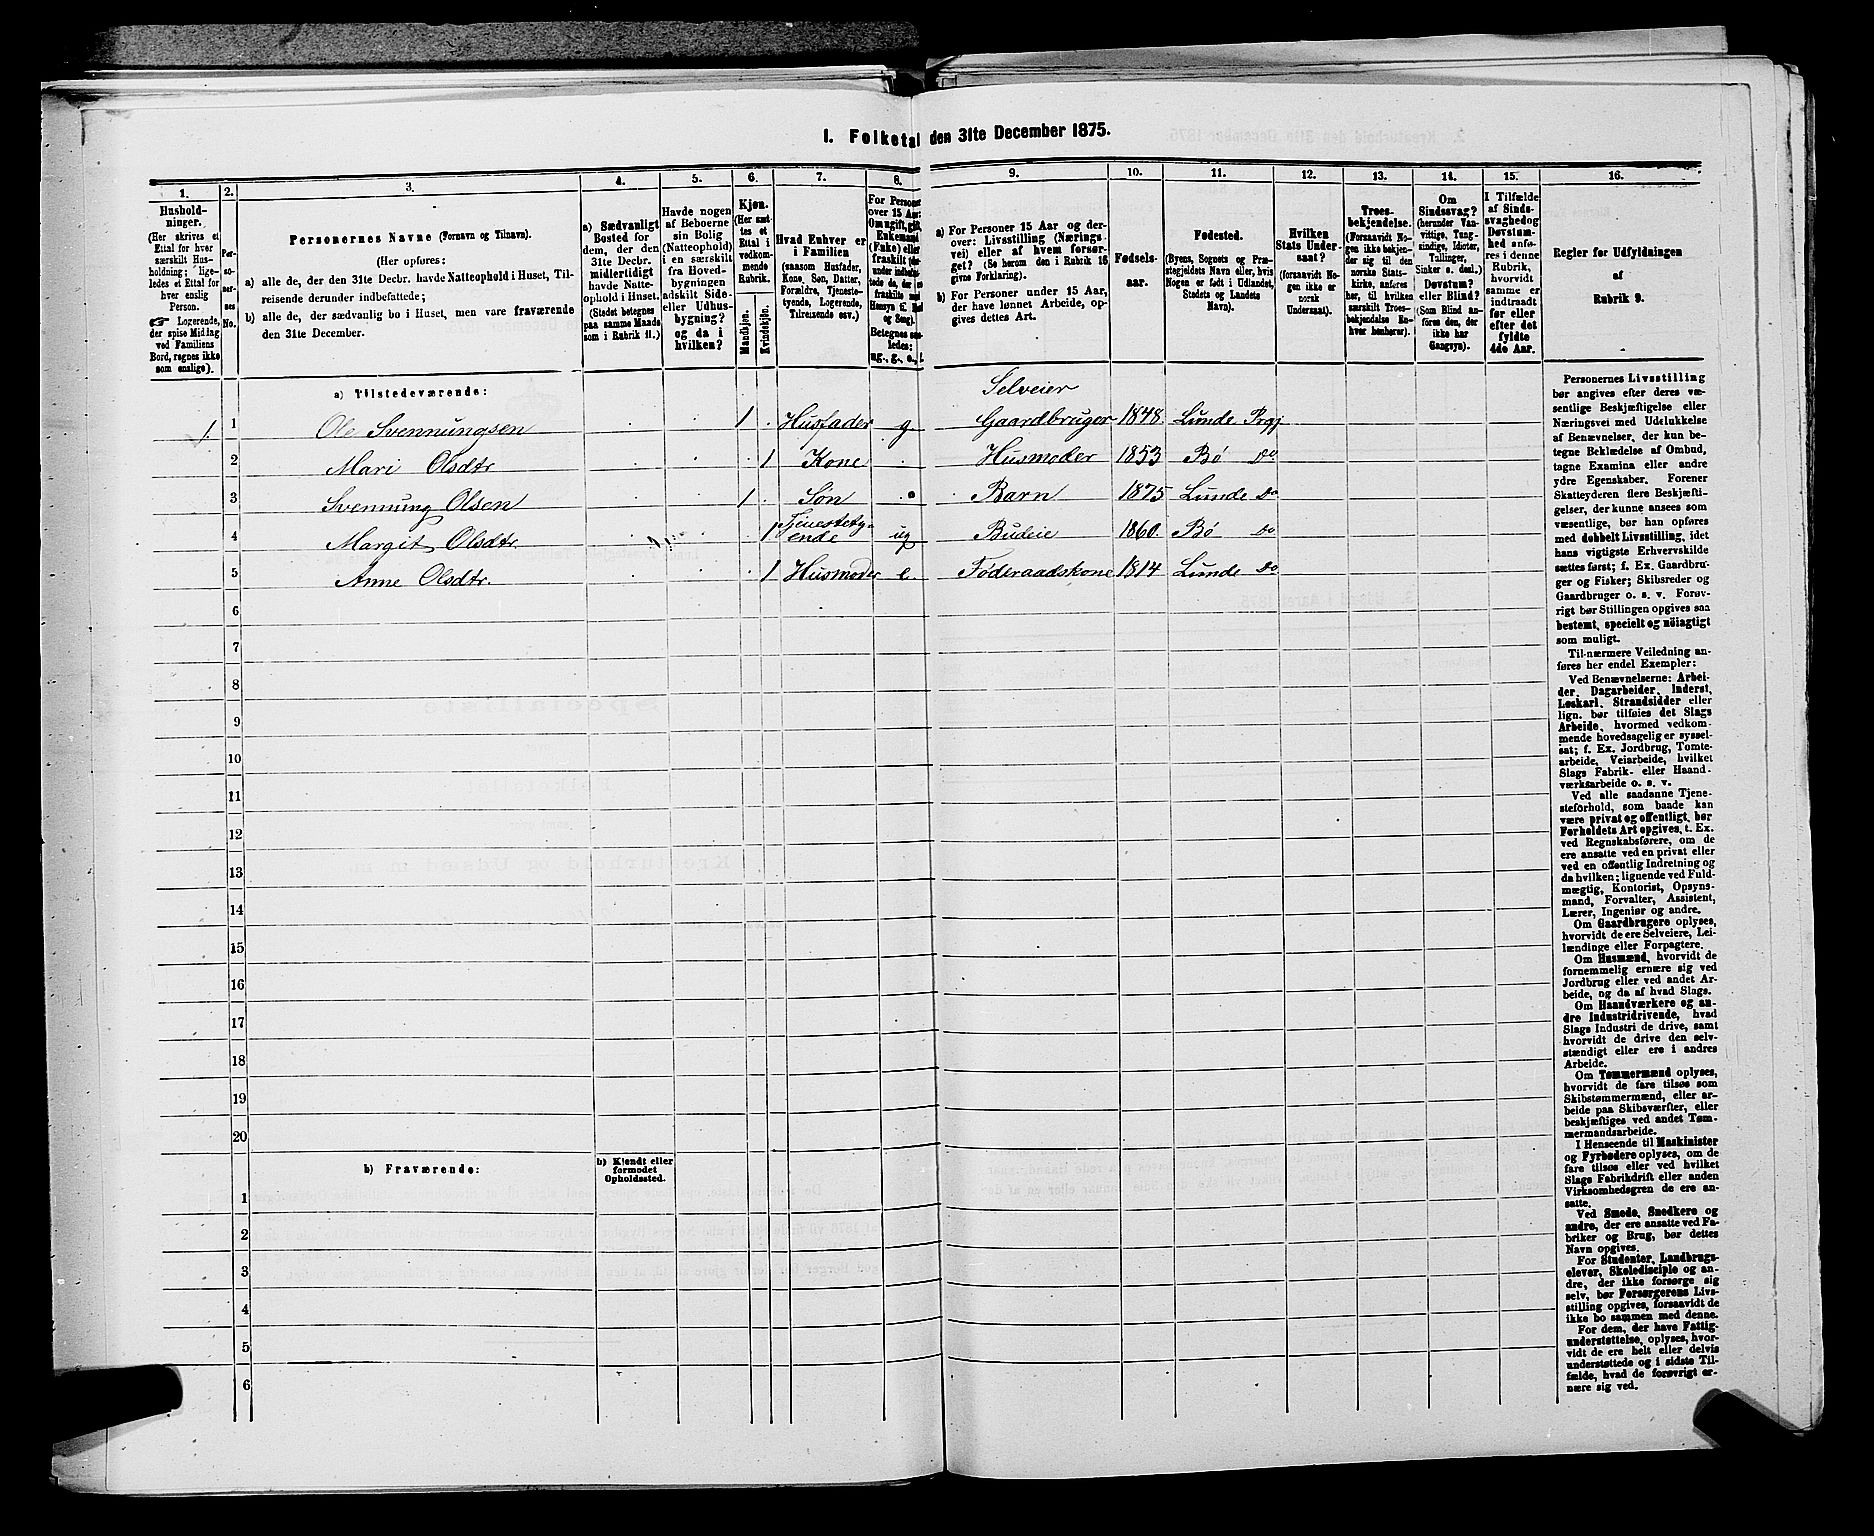 1. Folketal den 31te December 1875.
1. 2. 3. 4. 5. 6. 7. 8. 9. 10. 11. 12. 13. 14. 15. 16.
Hushold-
ninger.
(Her skrives et
Ettal for hver
særskilt Hus-
holdning; lige-
ledes et Ettal for
hver enslig
Person.
☞ Logerende,
der spise Middag
ved Familiens
Bord, regnes ikke
som enslige).
Per-
so-
ner-
nes
No.
Personernes Navne (Fornavn og Tilnavn).
(Her opføres:
a) alle de, der den 31te Decbr. havde Natteophold i Huset, Til-
reisende derunder indbefattede;
b) alle de, der sædvanlig bo i Huset, men vare fraværende
den 31te December.
a) Sædvanligt
Bosted for
dem, der den
31te Decbr.
midlertidigt
havde Natte-
ophold i Huset.
(Stedet betegnes
paa samme Maade
som i Rubrik 11.)
Havde nogen
af Beboerne
sin Bolig
(Natteophold)
i en særskilt
fra Hoved-
bygningen
adskilt Side-
eller Udhus-
bygning?
og da i
hvilken?
Kjøn.
(Her sæt-
tes et
Ettal i
vedkom-
mende
Rubrik.
Mandkjøn.
Kvindekjøn.
Hvad Enhver er
i Familien
(saasom Husfader,
Kone, Søn, Datter,
Forældre, Tjeneste-
tyende, Logerende,
Tilreisende osv.)
For Person
over 15 Aar:
Om ugift, gift,
Enkemand
(Enke) eller
fraskilt
Betegnes saa-
ledes:
ug., g., e., f.
a) For Personer 15 Aar og der-
over: Livsstilling (Nærings-
vei) eller af hvem forsør-
get? (Se herom den i Rubrik 16
givne Forklaring).
b) For Personer under 15 Aar,
der have lønnet Arbeide, op-
gives dettes Art.
Fødsels-
aar.
Fødested.
(Byens, Sognets og Præ-
stegjeldets Navn eller, hvis
Nogen er født i Udlandet,
Stedets og Landets
Navn).
Hvilken
Stats Under-
saat?
(forsaavidt No-
gen ikke er
norsk
Undersaat).
Troes-
bekjendelse.
(Forsaavidt No-
gen ikke bekjen-
der sig til den
norske Stats-
kirke, anføres
her, til hvilken
særskilt Troes-
bekjendelse En-
hver henhører).
Om
Sindssvag?
(herunder Van-
vittige, Tung-
sindige, Idioter,
Tullinger,
Sinker o. desl.)
Døvstum?
eller Blind?
(Som Blind an-
føres den, der
ikke har
Gangsyn).
I Tilfælde
af Sinds-
svaghed og
Døvstum-
hed anfø-
res i denne
Rubrik,
hvorvidt
samme er
indtraadt
før eller
efter det
fyldte
4de Aar.
Regler for Udfyldningen
af
Rubrik 9.
a) Tilstedeværende:
1. 1 Ole Svennungsen 1 Husfader g. Selveier Gaardbruger 1848. Lunde Prgj
2 Mari Olsdtr 1 Kone Husmoder 1853 Bø Do
3 Svennung Olsen 1 Søn Barn 1875 Lunde Do
4 Margit Olsdtr. 1 Tjenestety-
ende ug Budeie 1860. Bø Do
5 Anne Olsdtr. 1 Husmoder e. Føderaadskone 1814 Lunde Do
6
7
8
9
10
11
12
13
14
15
16
17
18
19
20
b) Fraværende:
b) Kjendt eller
formodet
Opholdssted.
1
2
3
4
5
6
Personernes Livsstilling
bør angives efter deres væ-
sentlige Beskjæftigelse eller
Næringsvei med Udelukkelse
af Benævnelser, der kun be-
tegne Beklædelse af Ombud,
tagne Examina eller andre
ydre Egenskaber. Forener
Skatteyderen flere Beskjæfti-
gelser, der kunne ansees som
væsentlige, bør han opføres
med dobbelt Livsstilling, idet
hans vigtigste Erhvervskilde
sættes først; f. Ex. Gaardbru-
ger og Fisker; Skibsreder og
Gaardbruger o. s. v. Forøv-
rigt bør Stillingen opgives saa
bestemt, specielt og nöiagtigt
som muligt.
Til nærmere Veiledning an-
føres her endel Exempler:
Ved Benævnelserne: Arbei-
der, Dagarbeider, Inderst,
Løskarl, Strandsidder eller
lign. bør tilføies det Slags
Arbeide, hvormed vedkom-
mende hovedsagelig er syssel-
sat; f. Ex. Jordbrug, Tomte-
arbeide, Veiarbeide, hvilket
Slags Fabrik- eller Haand-
værksarbeide o. s. v.
Ved alle saadanne Tjene-
steforhold, som baade kan
være privat og offentligt, bør
Forholdets Art opgives, t. Ex.
ved Regnskabsførere, om de
ere ansatte ved en privat eller
ved en offentlig Indretning og
da hvilken; lignende ved Fuld-
mægtig, Kontorist, Opsyns-
mand, Forvalter, Assistent,
Lærer, Ingeniør og andre.
Om Gaardbrugere oplyses,
hvorvidt de ere Selveiere, Lei-
lændinge eller Forpagtere.
Om Husmænd, hvorvidt de
fornemmelig ernære sig ved
Jordbrug eller ved andet Ar-
beide, og da af hvad Slags.
Om Haandværkere og an-
dre Industridrivende, hvad
Slags Industri de drive, samt
hvorvidt de drive den selv-
stændigt eller ere i andres
Arbeide.
Om Tømmermænd oplyses,
hvorvidt de fare tilsøs som
Skibstømmermænd, eller ar-
beide paa Skibsværfter, eller
beskjæftiges ved andet Tøm-
mermandsarbeide.
I Henseende til Maskinister
og Fyrbødere oplyses, om de
fare tilsøs eller ved hvilket
Slags Fabrikdrift eller anden
Virksomhedsgren de ere an-
satte.
Ved Smede, Snedkere og
andre, der ere ansatte ved Fa-
briker og Brug, bør dettes
Navn opgives.
For Studenter, Landbrugs-
elever, Skoledisciple og an-
dre, der ikke forsørge sig
selv, bør Forsørgerens Livs-
stilling opgives, forsaavidt de
ikke bo sammen med denne.
For dem, der have Fattig-
understøttelse, oplyses, hvor-
vidt de ere helt eller delvis
understøttede og i sidste Til-
fælde, hvad de forøvrigt er-
nære sig ved.